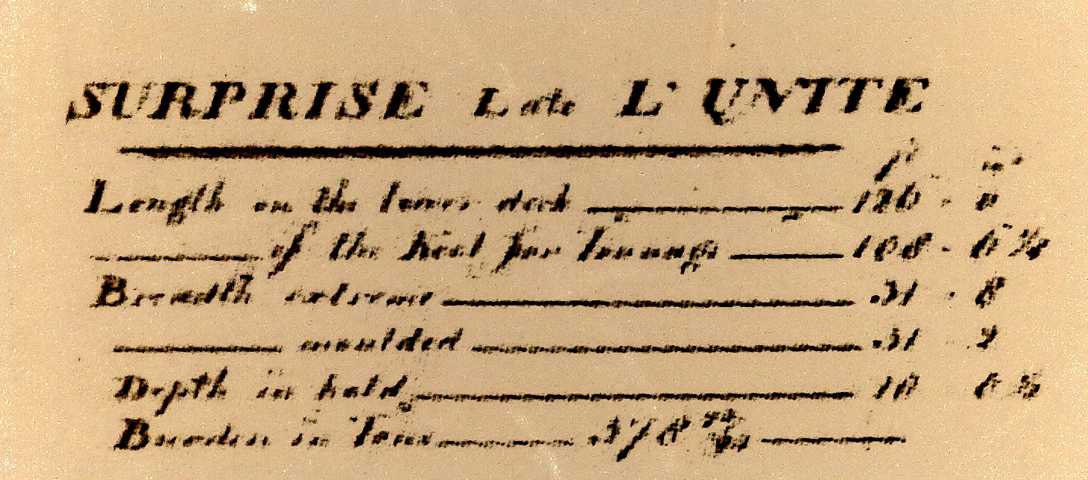 SURPRISE Late L'UNITE
ft in
Length on the lower deck 126 - 0
of the Keel for Tonnage 108 - 6 ⅛
Breadth extreme 31 - 8
moulded 31
Depth in hold 10
Burden in Tons 578